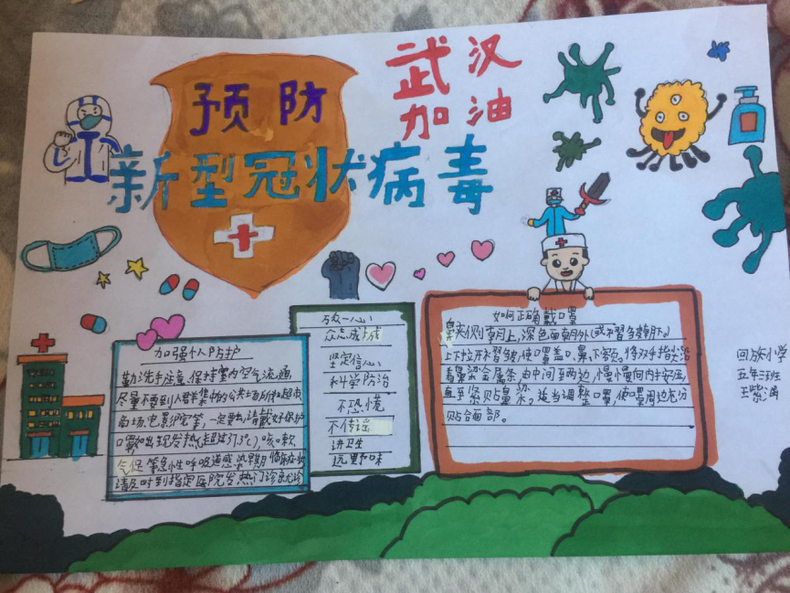 预防
武汉
加油
新型冠状病毒
加强个人防护
勤洗手注意，保持室内空气流通
尽量不要到人群集中的公共场所和超市
商场，也要
一定要
戴好保护
口罩如出现发热(超过37℃)咳嗽
等急性呼吸道感染早期临床症状
请及时到指定医院发热门诊就诊
万众一心
众志成城
坚定信心
科学防治
不恐慌
不传谣
讲卫生
远离野味
如何正确戴口罩
鼻夹侧朝上，深色面朝外(或褶皱朝下)
上下拉开褶皱，使口罩盖口、鼻、下颌，将双手指尖沿
着鼻梁金属条，由中间至两边，慢慢向内按压，
直至紧贴鼻梁。适当调整口罩，使口罩周边充分
贴合面部。
回族小学
五年三班
王紫涵